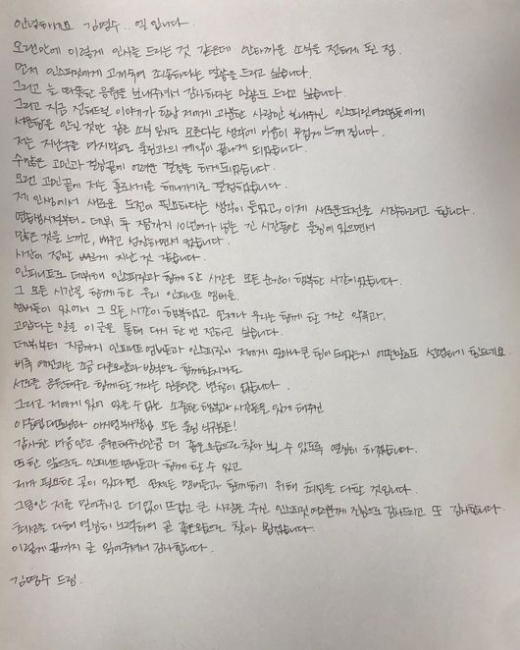 안녕하세요 김명수.. 엘 입니다.
오랜만에 이렇게 인사를 드리는 것 같은데 안타까운 소식을 전하게 된 점.
먼저 인스피릿에게 고개숙여 죄송하다는 말씀을 드리고 싶습니다.
그리고 늘 따뜻한 응원을 보내주셔서 감사하다는 말씀도 드리고 싶습니다.
그리고 지금 전해드릴 이야기가 항상 저에게 과분한 사랑만 보내주신 인스피릿 여러분들에게
서운함을 안길 것만 같은 소식 일지도 모른다는 생각에 마음이 무겁게 느껴집니다.
저는 지난주를 마지막으로 울림과의 계약이 끝나게 되었습니다.
수많은 고민과 결정끝에 어려운 결정을 하게되었습니다.
오랜 고민끝에 저는 홀로서기를 해나가기로 결정했습니다.
제 인생에서 새로운 도전이 필요하다는 생각이 들었고, 이제 새로운도전을 시작하려고 합니다.
연습생시절부터.. 데뷔 후 지금까지 10년여가 넘는 긴 시간동안 울림에 있으면서
많은 것을 느끼고, 배우고 성장하면서 컸습니다.
시간이 정말 빠르게 지난 것 같습니다.
인피니트로 데뷔해 인스피릿과 함께 한 시간은 모든 순간이 행복한 시간이었습니다.
그 모든 시간을 함께 한 우리 인피니트 멤버들.
멤버들이 있어서 그 모든 시간이 행복했고 언제나 우리는 함께 할 거란 약속과,
고맙다는 말을 이 글을 통해 다시 한 번 전하고 싶습니다.
데뷔부터 지금까지 인피니트 멤버들과 인스피릿이 저에게 얼마나 큰 힘이 되었는지 어떤말로도 설명하기 힘드네요.
비록 예전과는 조금 다른모양과 방식으로 함께하겠지만
서로를 응원해주고 함께 할 거라는 믿음만은 변함이 없습니다.
그리고 저에게 있어 잊을 수 없는 소중한 행복과 시간들을 있게 해주신
이중엽 대표님과 이사님 부터 모든 울림 식구분들!
감사한 마음 안고 응원해주신만큼 더 좋은모습으로 찾아 뵐 수 있도록 열심히 하겠습니다.
또한 앞으로도 인피니트 멤버들과 함께 할 수 있고
제가 필요한 곳이 있다면 언제든 멤버들과 함께하기 위해 최선을 다할 것입니다.
그동안 저를 믿어주시고 더 없이 뜨겁고 큰 사랑을 주신 인스피릿 여러분께 진심으로 감사드리고 또 감사합니다.
노력하여 곧 좋은모습으로 찾아 뵙겠습니다.
이렇게 끝까지 글 읽어주셔서 감사합니다.
김명수 드림.